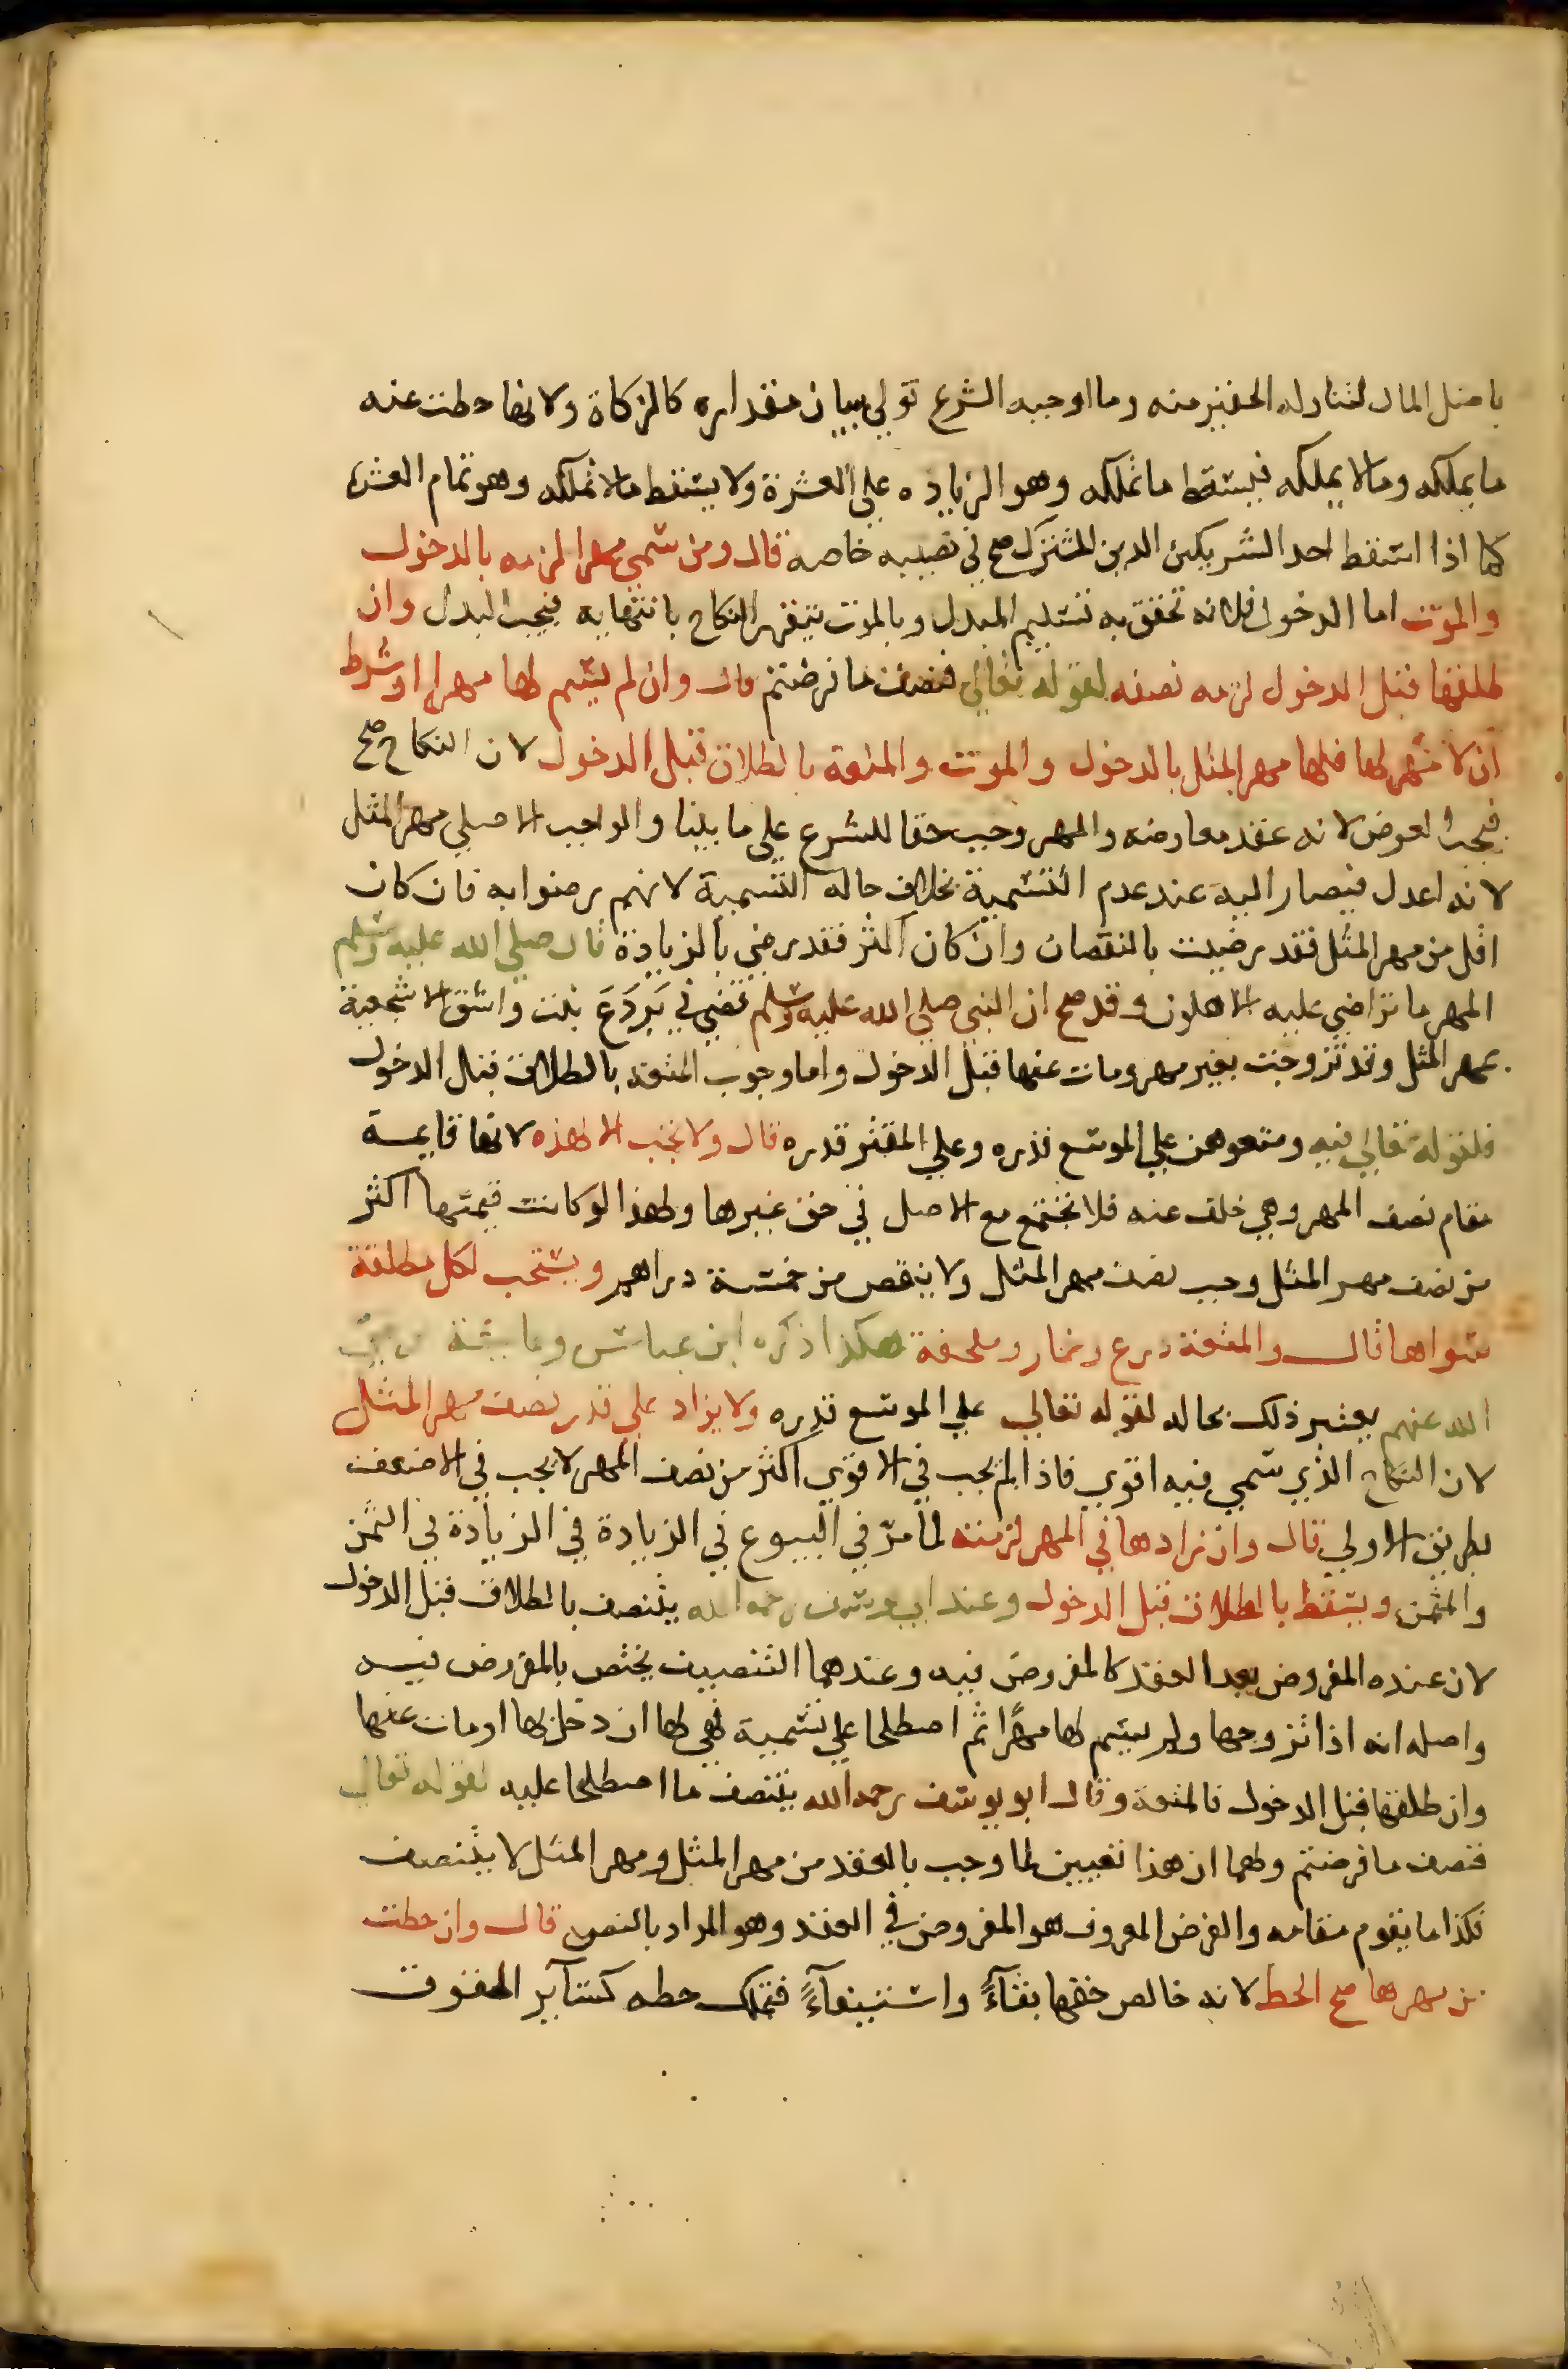 باصل المال لتناوله الحقير منه وما اوجبه الشرع تولي بيان مقداره كالزكاة ولانها حطت عنه
ما يملكه وما لا يملكه فيسقط ما تملكه وهو الزياده علي العشرة ولا يسقط ما لا تملكه وهو تمام العشرة
كما اذا اسقط احد الشريكين الدين المشترك صح في نصيبه خاصه قال ومن سمي مهرا لزمه بالدخول
والموت اما الدخول فلانه تحقق به تسليم المبدل وبالموت يتقرر النكاح بانتهايه فيجب البدل وان
طلقها قبل الدخول لزمه نصفه لقوله تعالي فنصف ما فرضتم قال وان لم يسم لها مهرا او شرط
ان لا مهر لها فلها مهر المثل بالدخول والموت والمتعة بالطلاق قبل الدخول لان النكاح صح
فيجب العوض لانه عقد معاوضه والمهر وجب حقا للشرع علي ما بينا والواجب الاصلي مهر المثل
لانه اعدل فيصار اليه عند عدم التسمية بخلاف حاله التسمية لانهم رضوا به فان كان
اقل من مهر المثل فقد رضيت بالنقصان وان كان اكثر فقد رضي بالزيادة قال صلي الله عليه وسلم
المهر ما تراضي عليه الاهلون وقد صح ان النبي صلي الله عليه وسلم قضي في بَروَعَ بنت واشق الاشجعية
بمهر المثل وقد تزوجت بغير مهر ومات عنها قبل الدخول واما وجوب المتعه بالطلاق قبل الدخول
فلقوله تعالي فيه ومتعوهن علي الموسع قدره وعلي المقتر قدره قال ولا تجب الا لهذه لانها قايمة
مقام نصف المهر وهي خلف عنه فلا تجتمع مع الاصل في حق غيرها ولهذا لو كانت قيمتها اكثر
من نصف مهر المثل وجب نصف مهر المثل ولا ينقص من خمسة دراهم ويستحب لكل مطلقة
سواها قال والمتعة درع وخمار وملحفة هكذا ذكره ابن عباس وعايشة رضي
الله عنهم يعتبر ذلك بحاله لقوله تعالي علي الموسع قدره ولا يزاد علي قدر نصف مهر المثل
لان النكاح الذي سمي فيه اقوي فاذا لم يجب في الاقوي اكثر من نصف المهر لا يجب في الاضعف
بطريق الاولي قال وان زادها في المهر لزمته لما مرّ في البيوع في الزيادة في الزيادة في الثمن
والمثمن ويسقط بالطلاق قبل الدخول وعند ابي يوسف رحمه الله يتنصف بالطلاق قبل الدخول
لان عنده المفروض بعد العقد كالمفروض فيه وعندهما التنصيف يختص بالمفروض فيه
واصله انه اذا تزوجها ولم يسم لها مهرًا ثم اصطلحا علي تسمية فهي لها ان دخل بها او مات عنها
وان طلقها قبل الدخول فالمتعة وقال ابو يوسف رحمه الله يتنصف ما اصطلحا عليه لقوله تعالي
فنصف ما فرضتم ولهما ان هذا تعيين لما وجب بالعقد من مهر المثل ومهر المثل لا يتنصف
فكذا ما يقوم مقامه والفرض المعروف هو المفروض في العقد وهو المراد بالنص قال وان حطت
من مهرها صح الحط لانه خالص حقها بقآءً واستيفآءً فتملك حطه كسآير الحقوق